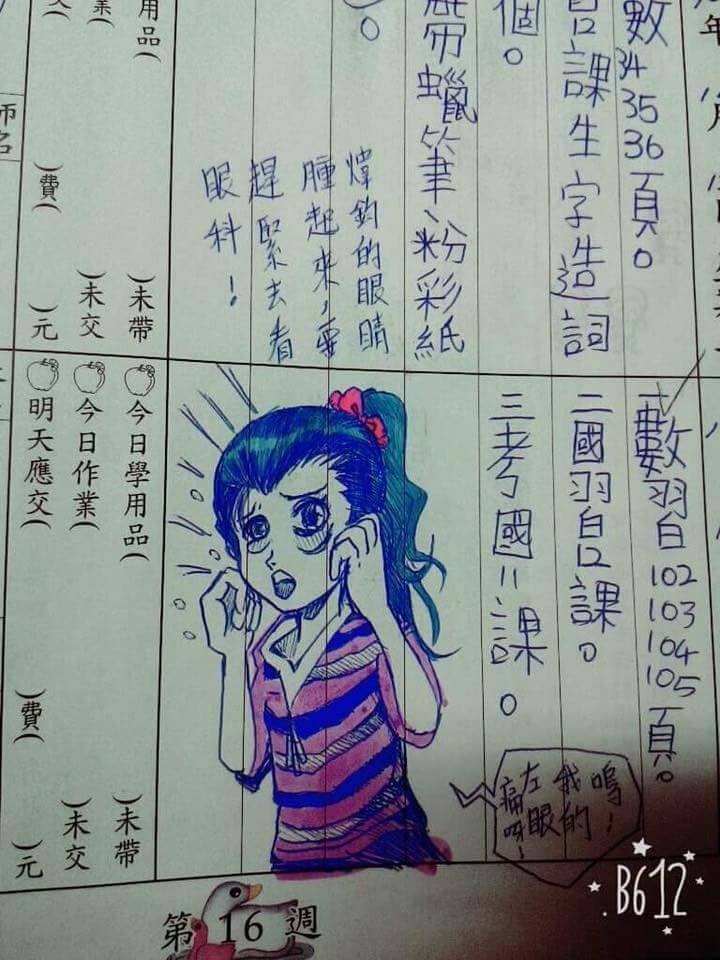 數 34 35 36 頁。
習㇐課生字造詞
個。
蠟筆、粉彩紙
。
煒鈞的眼睛
腫起來，要
趕緊去看
眼科！
用品︶
︶未帶
︶未交
︵費︶
︶元
一數習自 102 103 104 105 頁。
二國習㇐課。
三考國二課。
嗚！
我的
左眼
痛呀！
今日學用品︵
︶未帶
今日作業︵
︶未交
明天應交︵
費︵
︶元
第 16 週
B612